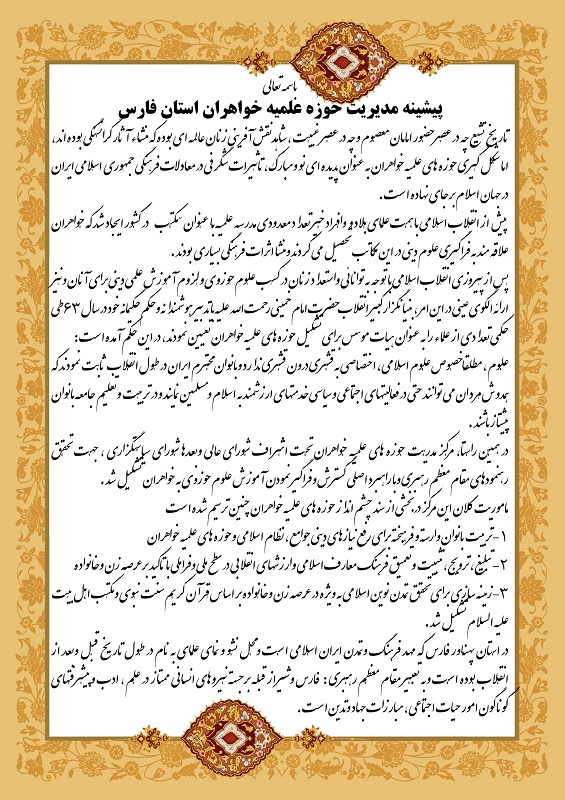 باسمه تعالی
پیشینه مدیریت حوزه علمیه خواهران استان فارس
تاریخ تشیع چه در عصر حضور امامان معصوم و چه در عصر غیبت، شاهد نقش آفرینی زنان عالمه ای بوده که منشاء آثار گرانسنگی بوده اند،
اما شکل گیری حوزه های علمیه خواهران به عنوان پدیده ای نو و مبارک، تاثیرات شگرفی در معادلات فرهنگی جمهوری اسلامی ایران
در جهان اسلام بر جای نهاده است.
پیش از انقلاب اسلامی با همت علمای بلاد و افراد خیر تعداد معدودی مدرسه علمیه با عنوان مکتب در کشور ایجاد شد که خواهران
علاقه مند به فراگیری علوم دینی در این مکاتب تحصیل می کردند و منشا اثرات فرهنگی بسیاری بودند.
پس از پیروزی انقلاب اسلامی با توجه به توانائی و استعداد زنان در کسب علوم حوزوی و لزوم آموزش علمی دینی برای آنان و نیز
ارائه الگوی عینی در این امر، بنیانگزار کبیر انقلاب حضرت امام خمینی رحمت الله علیه با تدبیر هوشمندانه و حکم حکیمانه خود در سال ۶۳ طی
حکمی تعدادی از علماء را به عنوان هیات موسس برای تشکیل حوزه های علمیه خواهران تعیین نمودند، در این حکم آمده است:
علوم، مطلقا خصوص علوم اسلامی، اختصاصی به قشری درون قشری ندارد و بانوان محترم ایران در طول انقلاب ثابت نمودند که
همدوش مردان می توانند حتی در فعالیتهای اجتماعی و سیاسی خدمتهای ارزشمند به اسلام و مسلمین نمایند و در تربیت و تعلیم جامعه بانوان
پیشتاز باشند.
در همین راستا، مرکز مدیریت حوزه های علمیه خواهران تحت اشراف شورای عالی و بعدها شورای سیاستگزاری، جهت تحقق
رهنمودهای مقام معظم رهبری و با راهبرد اصلی گسترش و فراگیر نمودن آموزش علوم حوزوی به خواهران تشکیل شد.
ماموریت کلان این مرکز در بخشی از سند چشم انداز حوزه های علمیه خواهران چنین ترسیم شده است
۱-تربیت بانوان وارسته و فرهیخته برای رفع نیازهای دینی جوامع، نظام اسلامی و حوزه های علمیه خواهران
۲-تبلیغ، ترویج، تثبیت و تعمیق فرهنگ معارف اسلامی و ارزشهای انقلابی در سطح ملی و فراملی با تاکید بر عرصه زن و خانواده
۳-زمینه سازی برای تحقق تمدن نوین اسلامی به ویژه در عرصه زن و خانواده بر اساس قرآن کریم سنت نبوی و مکتب اهل بیت
علیه السلام تشکیل شد.
در استان پهناور فارس که مهد فرهنگ و تمدن ایران اسلامی است و محل نشو و نمای علمای به نام در طول تاریخ قبل و بعد از
انقلاب بوده است و به تعبیر مقام معظم رهبری: فارس و شیراز قبله برجسته نیروهای انسانی ممتاز در علم، ادب و پیشرفتهای
گوناگون امور حیات اجتماعی، مبارزات جهاد و تدین است.